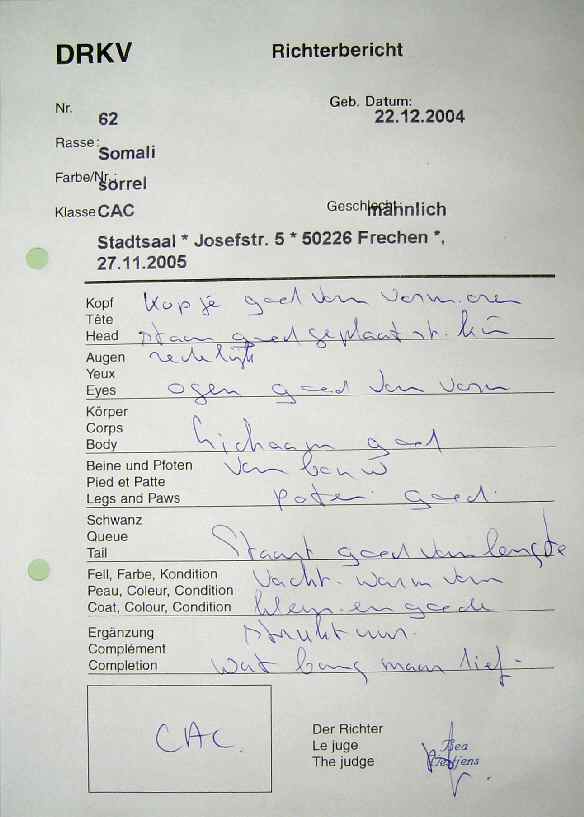 DRKV
Richterbericht
Nr. 62
Geb. Datum: 22.12.2004
Rasse: Somali
Farbe/Nr.: sorrel
Klasse CAC
Geschlecht männlich
Stadtsaal * Josefstr. 5 * 50226 Frechen *,
27.11.2005
Kopf Kopje goed van vorm. oren
Tête
Head staan goed geplaatst. kin
Augen redelijk
Yeux
Eyes ogen goed van vorm
Körper
Corps
Body Lichaam goed
Beine und Pfoten van bouw
Pied et Patte
Legs and Paws poten goed.
Schwanz
Queue
Tail Staart goed van lengte
Fell, Farbe, Kondition Vacht. warm van
Peau, Coleur, Condition
Coat, Colour, Condition kleur. en goede
Ergänzung struktuur.
Complément
Completion Wat bang maar lief.
CAC.
Der Richter
Le juge
The judge
Bea